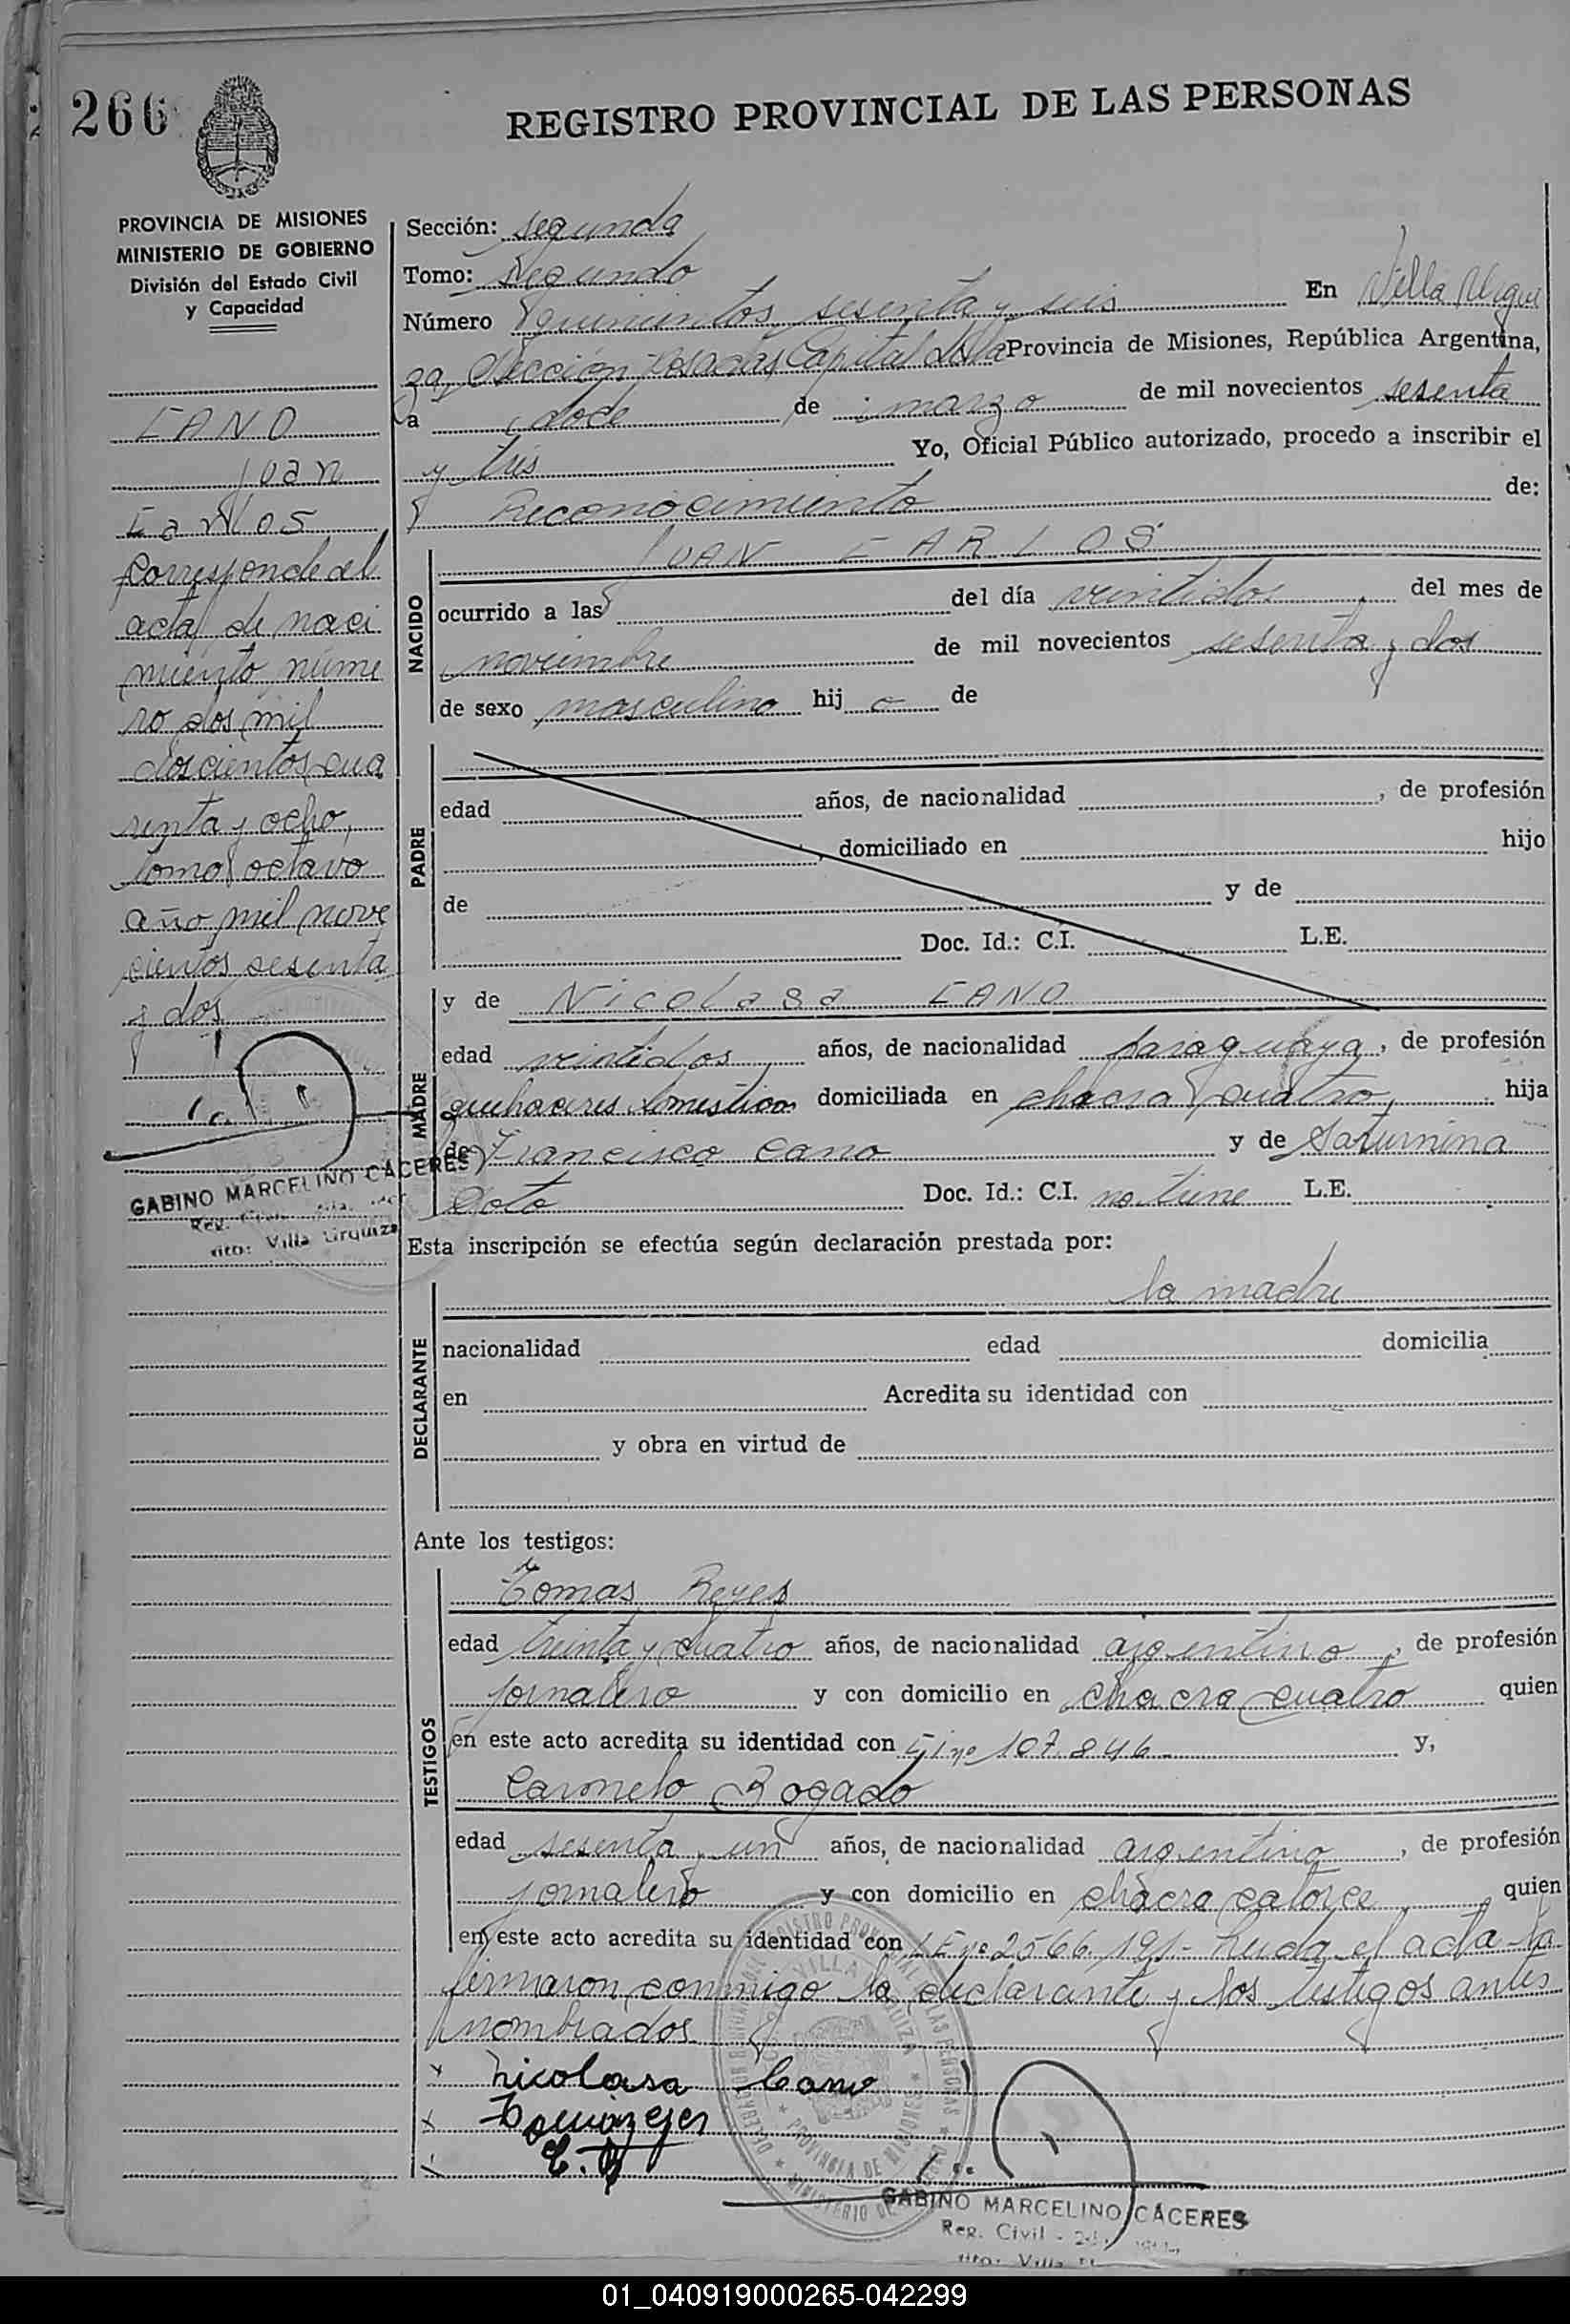 266
REGISTRO PROVINCIAL DE LAS PERSONAS
PROVINCIA DE MISIONES
MINISTERIO DE GOBIERNO
División del Estado Civil
y Capacidad
CANO
Juan
Carlos
Corresponde al
acta de naci
miento núme
ro dos mil
doscientos cua
renta y ocho,
tomo octavo
año mil nove
cientos sesenta
y dos
GABINO MARCELINO CACERES
Reg. Civil
Villa Urquiza
Sección: segunda
Tomo: segundo
Número quinientos sesenta y seis En Villa Urqui
za, Sección Posadas, Capital de la Provincia de Misiones, República Argentina,
a doce de marzo de mil novecientos sesenta
y tres Yo, Oficial Público autorizado, procedo a inscribir el
Reconocimiento de:
NACIDO
JUAN CARLOS
ocurrido a las del día veintidos del mes de
noviembre de mil novecientos sesenta y dos
de sexo masculino hij o de
PADRE
edad años, de nacionalidad , de profesión
, domiciliado en hijo
de y de
Doc. Id.: C.I. L.E.
MADRE
y de Nicolasa CANO
edad veintidos años, de nacionalidad paraguaya, de profesión
quehaceres domesticos domiciliada en chacra cuatro, hija
de Francisco Cano y de Saturnina
Soto Doc. Id.: C.I. no tiene L.E.
Esta inscripción se efectúa según declaración prestada por:
DECLARANTE
la madre
nacionalidad edad domicilia
en Acredita su identidad con
y obra en virtud de
Ante los testigos:
TESTIGOS
Tomas Reyes
edad treinta y cuatro años, de nacionalidad argentino, de profesión
jornalero y con domicilio en chacra cuatro quien
en este acto acredita su identidad con CI nº 107.846 y,
Carmelo Rogado
edad sesenta y un años, de nacionalidad argentino, de profesión
jornalero y con domicilio en chacra catorce, quien
en este acto acredita su identidad con LE nº 2566.191- Leida el acta la
firmaron conmigo la declarante y los testigos antes
nombrados
x Nicolasa Cano
x
x C. R
GABINO MARCELINO CÁCERES
Reg. Civil
01_040919000265-042299